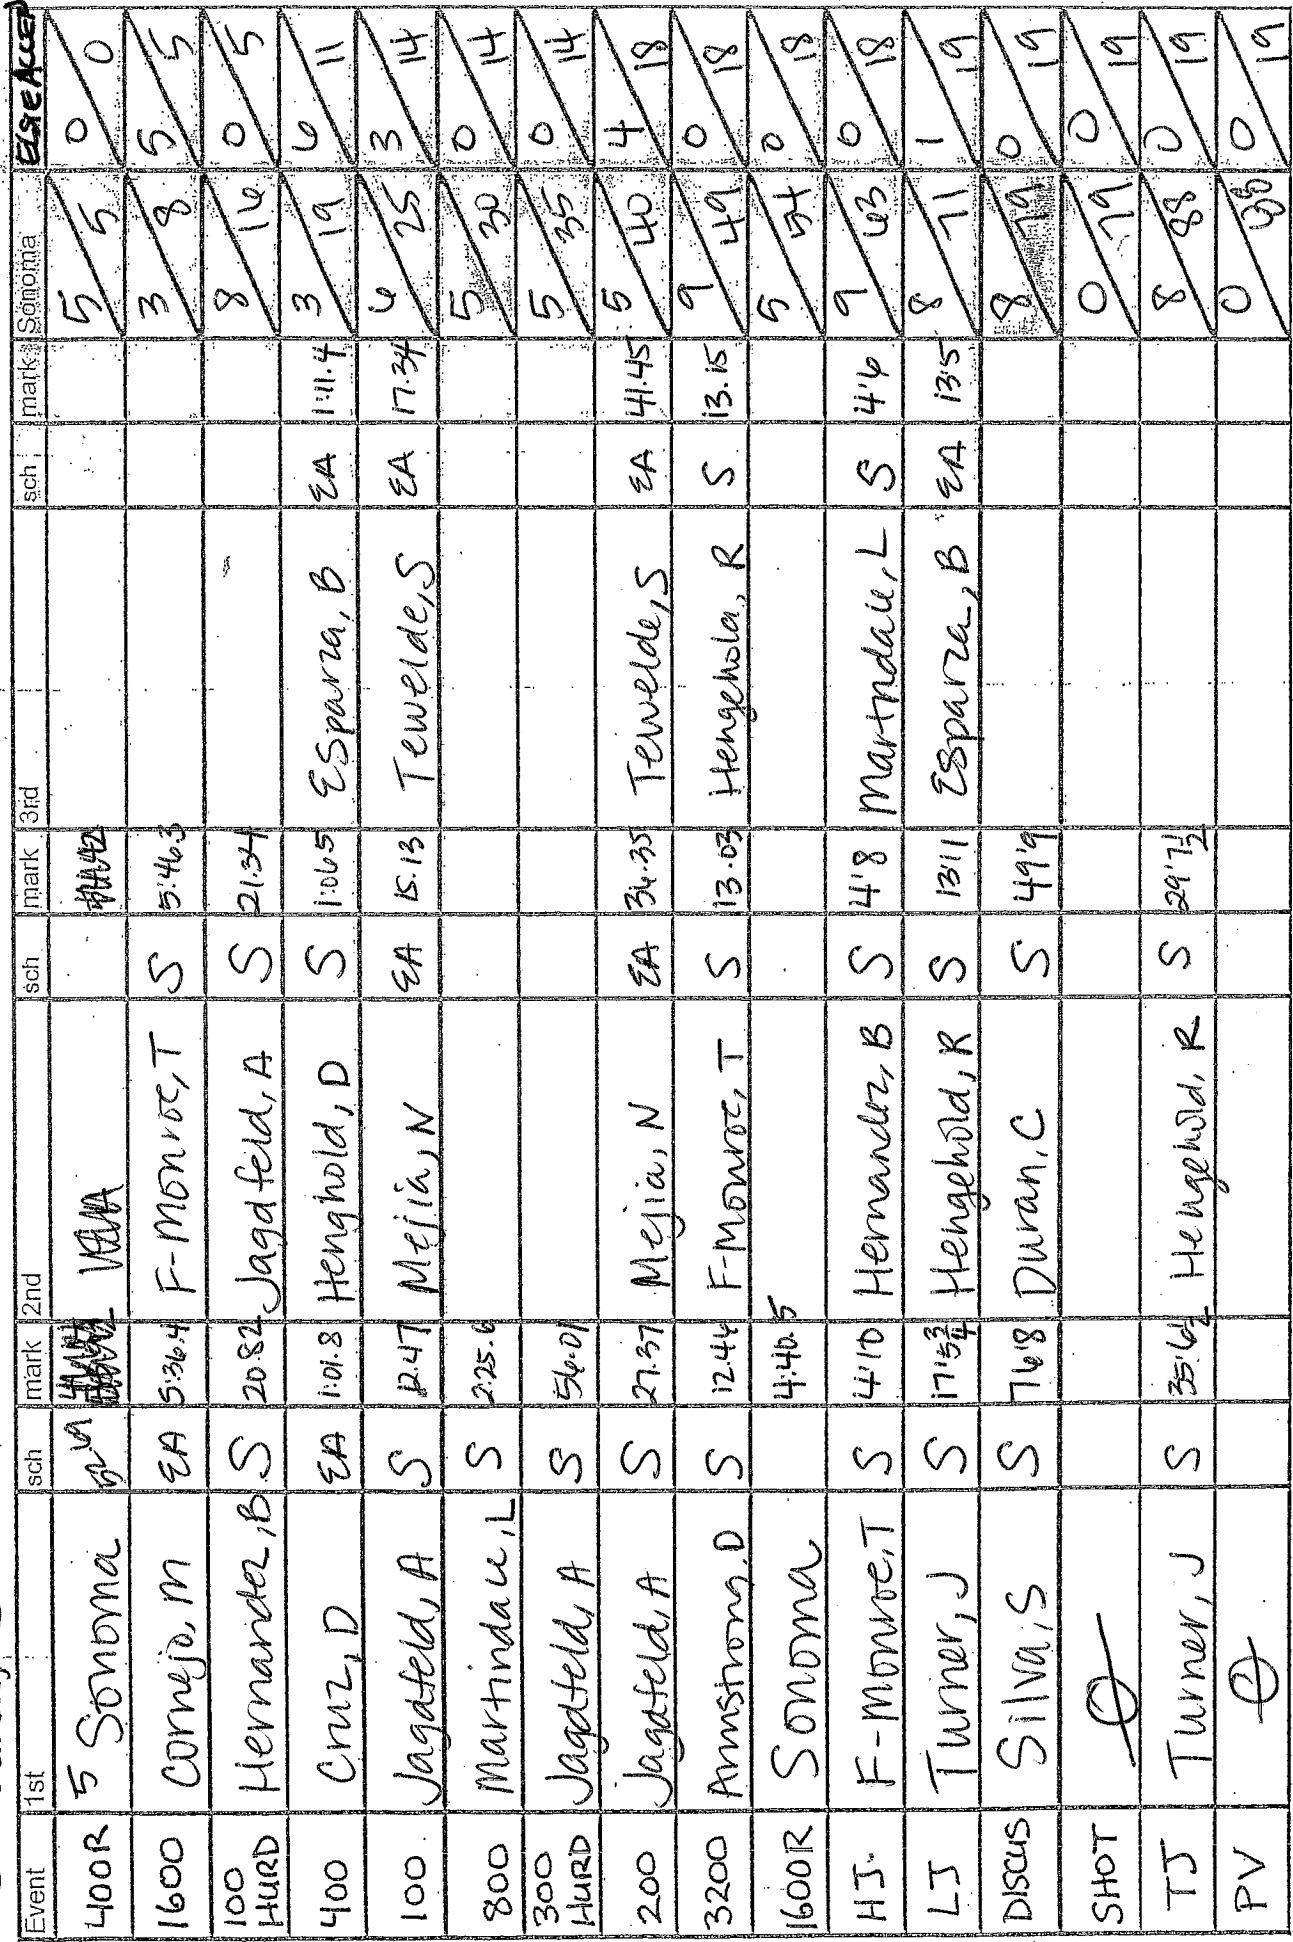 Event 1st sch mark 2nd sch mark 3rd sch mark Sonoma ELSIE ALLEN
400R 5 Sonoma 52.19 5/5 0/0
1600 Cornejo, M EA 5:36.4 F-Monroe, T S 5:46.3 3/8 5/5
100 HURD Hernandez, B S 20.82 Jagdfeld, A S 21.34 8/16 0/5
400 Cruz, D EA 1:01.8 Henghold, D S 1:06.5 Esparza, B EA 1:11.4 3/19 6/11
100 Jagdfeld, A S 12.47 Mejia, N EA 15.13 Tewelde, S EA 17.34 6/25 3/14
800 Martindale, L S 2:25.6 5/30 0/14
300 HURD Jagdfeld, A S 56.01 5/35 0/14
200 Jagdfeld, A S 27.37 Mejia, N EA 36.35 Tewelde, S EA 41.45 5/40 4/18
3200 Armstrong, D S 12.46 F-Monroe, T S 13.03 Hengehold, R S 13.15 9/49 0/18
1600R Sonoma 4:40.5 5/54 0/18
HJ F-Monroe, T S 4'10 Hernandez, B S 4'8 Martindale, L S 4'6 9/63 0/18
LJ Turner, J S 17'5 3/4 Hengehold, R S 13'11 Esparza, B EA 13'5 8/71 1/19
DISCUS Silva, S S 76'8 Duran, C S 49'9 8/79 0/19
SHOT Ø 0/79 0/19
TJ Turner, J S 35'6 1/2 Hengehold, R S 29'7 1/2 8/88 0/19
PV Ø 0/88 0/19